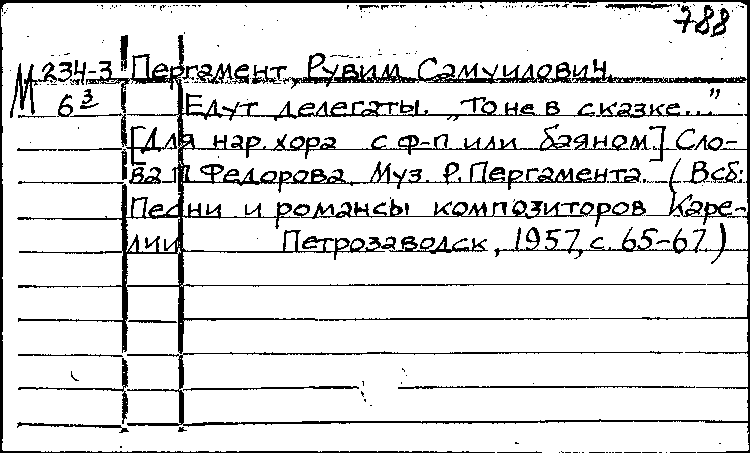 788
М 234-3 Пергамент, Рувим Самуилович.
6 3 Едут делегаты. „То не в сказке..."
[Для нар. хора с ф-п или баяном.] Сло-
ва П Федорова. Муз. Р. Пергамента. (В сб:
Песни и романсы композиторов Каре-
лии Петрозаводск, 1957, с. 65-67.)